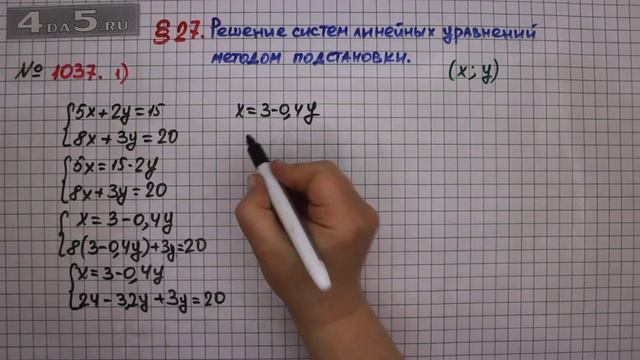 4DA5.RU
§27. Решение систем линейных уравнений
методом подстановки.
№ 1037. 1)
(x; y)
5x + 2y = 15
8x + 3y = 20
5x = 15 - 2y
8x + 3y = 20
x = 3 - 0,4y
8(3-0,4y)+3y=20
x = 3 - 0,4y
24 - 3,2y + 3y = 20
x = 3 - 0,4y